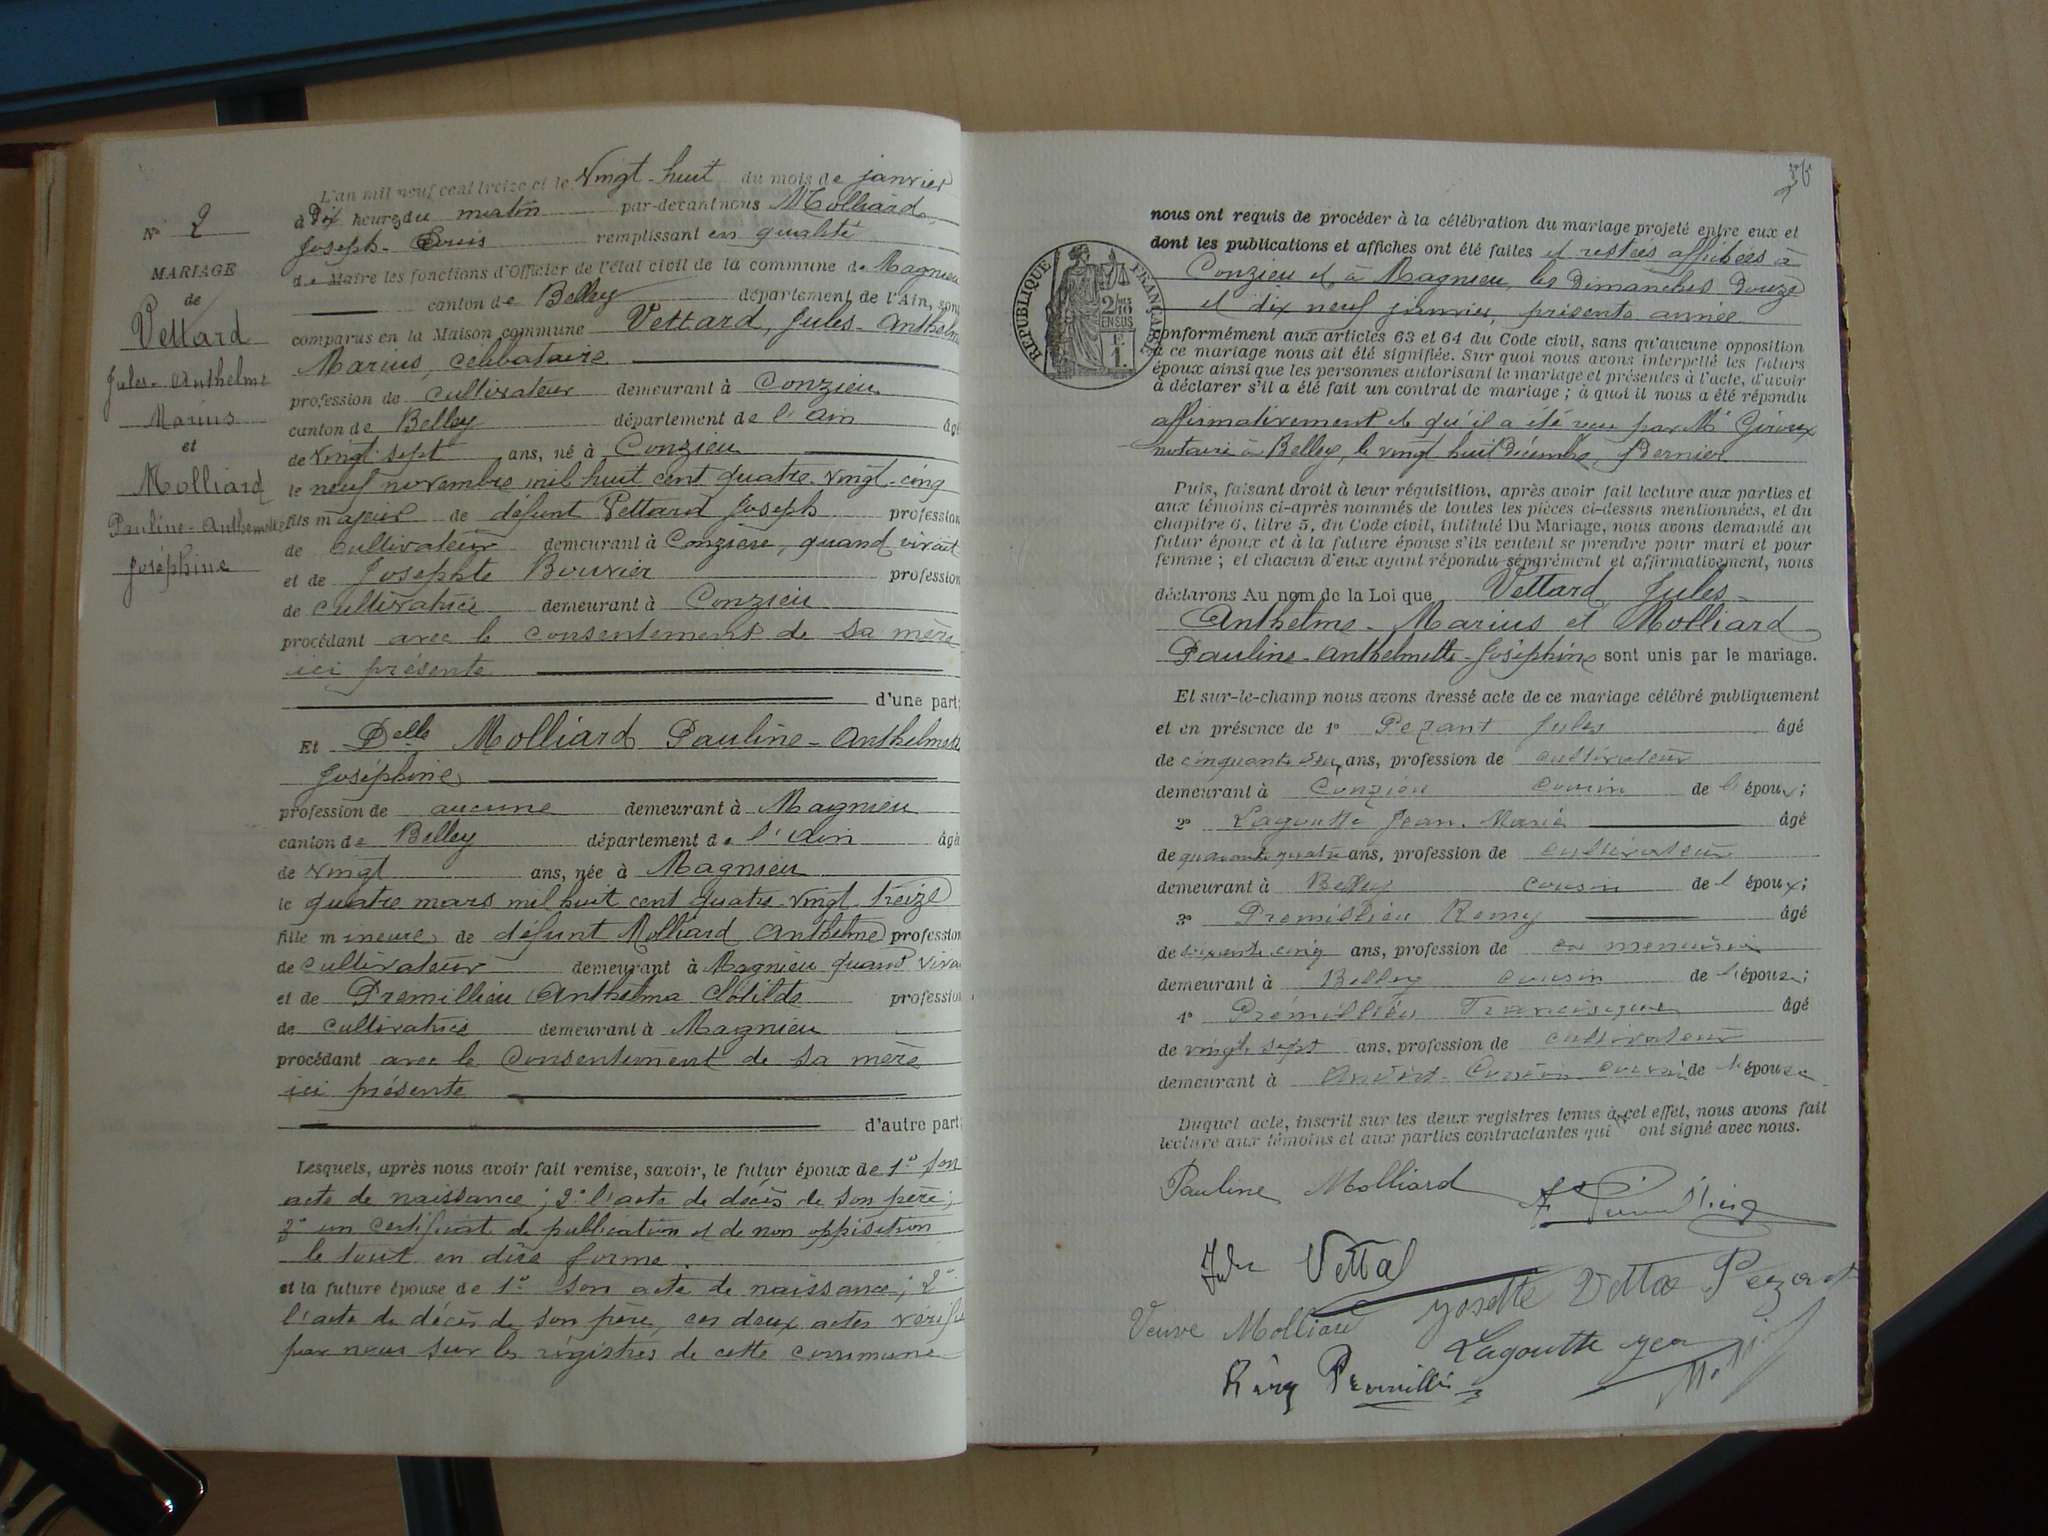 N° 2
MARIAGE
de
Vettard
Jules-Anthelme
Marius
et
Molliard
Pauline-Anthelmette
Joséphine
L'an mil neuf cent treize et le Vingt-huit du mois de janvier
à Dix heures du matin par-devant nous Molliard
Joseph-Louis remplissant en qualité
de Maire les fonctions d'Officier de l'état civil de la commune de Magnieu
canton de Belley département de l'Ain, sont
comparus en la Maison commune Vettard, Jules-Anthelme
Marius, célibataire
profession de cultivateur demeurant à Conzieu
canton de Belley département de l'Ain âgé
de vingt sept ans, né à Conzieu
le neuf novembre mil huit cent quatre-vingt-cinq
fils majeur de défunt Vettard Joseph profession
de cultivateur demeurant à Conzieu, quand vivait
et de Josephte Bouvier profession
de cultivatrice demeurant à Conzieu
procédant avec le consentement de sa mère
ici présente
d'une part;
Et Delle Molliard Pauline-Anthelmette
Joséphine
profession de aucune demeurant à Magnieu
canton de Belley département de l'Ain âgé
de vingt ans, née à Magnieu
le quatre mars mil huit cent quatre-vingt-treize
fille mineure de défunt Molliard Anthelme profession
de cultivateur demeurant à Magnieu quand viva
et de Premillieu Anthelma Clotilde profession
de cultivatrice demeurant à Magnieu
procédant avec le consentement de sa mère
ici présente
d'autre part;
Lesquels, après nous avoir fait remise, savoir, le futur époux de 1° son
acte de naissance; 2° l'acte de décès de son père;
3° un certificat de publication et de non opposition
le tout en due forme.
et la future épouse de 1° son acte de naissance; 2°
l'acte de décès de son père, ces deux actes vérifiés
par nous sur les régistres de cette commune
RÉPUBLIQUE FRANÇAISE
2/10 EN SUS
F. 1.
nous ont requis de procéder à la célébration du mariage projeté entre eux et
dont les publications et affiches ont été faites et restées affichées à
Conzieu et à Magnieu, les Dimanches Douze
et dix neuf janvier, présente année
conformément aux articles 63 et 64 du Code civil, sans qu'aucune opposition
à ce mariage nous ait été signifiée. Sur quoi nous avons interpellé les futurs
époux ainsi que les personnes autorisant le mariage et présentes à l'acte, d'avoir
à déclarer s'il a été fait un contrat de mariage; à quoi il nous a été répondu
affirmativement et qu'il a été reçu par Me Giroux
notaire à Belley, le vingt huit Décembre Dernier
Puis, faisant droit à leur réquisition, après avoir fait lecture aux parties et
aux témoins ci-après nommés de toutes les pièces ci-dessus mentionnées, et du
chapitre 6, titre 5, du Code civil, intitulé Du Mariage, nous avons demandé au
futur époux et à la future épouse s'ils veulent se prendre pour mari et pour
femme; et chacun d'eux ayant répondu séparément et affirmativement, nous
déclarons Au nom de la Loi que Vettard Jules-
Anthelme-Marius et Molliard
Pauline-Anthelmette-Joséphine sont unis par le mariage.
Et sur-le-champ nous avons dressé acte de ce mariage célébré publiquement
et en présence de 1° Pezant Jules âgé
de cinquante deux ans, profession de cultivateur
demeurant à Conzieu cousin de l'époux;
2° Lagoutte Jean-Marie âgé
de quarante quatre ans, profession de cultivateur
demeurant à Belley cousin de l'époux;
3° Premillieu Remy âgé
de soixante cinq ans, profession de menuisier
demeurant à Belley cousin de l'épouse;
4° Prémillieu Francisque âgé
de vingt sept ans, profession de cultivateur
demeurant à cousin de l'épouse
Duquel acte, inscrit sur les deux registres tenus à cet effet, nous avons fait
lecture aux témoins et aux parties contractantes qui ont signé avec nous.
Pauline Molliard
Jules Vettard
Josette Vettard Pezant
Veuve Molliard
Lagoutte jean